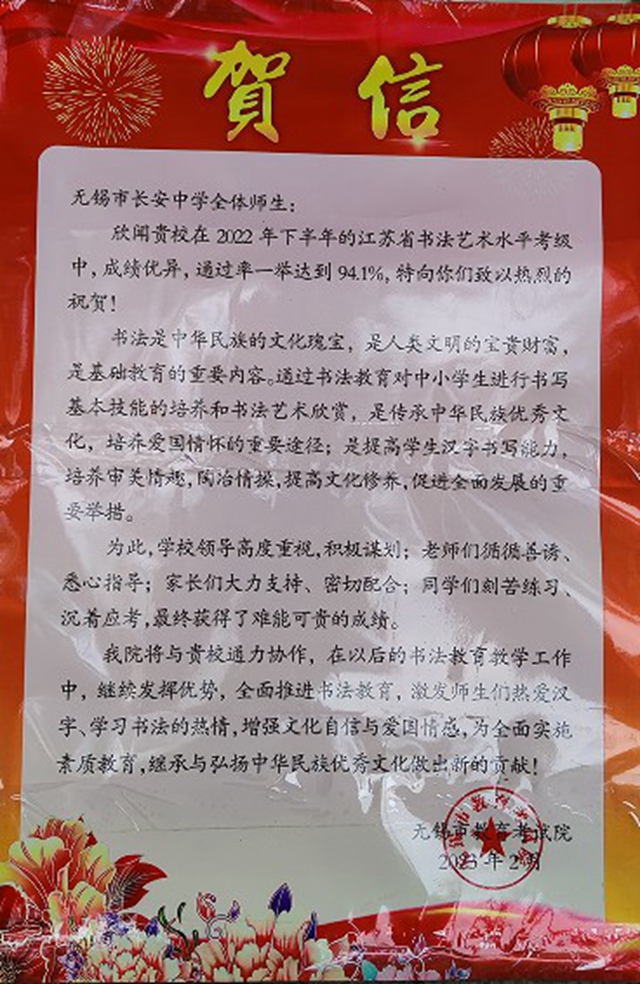 賀信
无锡市长安中学全体师生：
欣闻贵校在2022年下半年的江苏省书法艺术水平考级
中，成绩优异，通过率一举达到94.1%，特向你们致以热烈的
祝贺！
书法是中华民族的文化瑰宝，是人类文明的宝贵财富，
是基础教育的重要内容。通过书法教育对中小学生进行书写
基本技能的培养和书法艺术欣赏，是传承中华民族优秀文
化，培养爱国情怀的重要途径；是提高学生汉字书写能力，
培养审美情趣，陶冶情操，提高文化修养，促进全面发展的重
要举措。
为此，学校领导高度重视，积极谋划；老师们循循善诱、
悉心指导；家长们大力支持、密切配合；同学们刻苦练习、
沉着应考，最终获得了难能可贵的成绩。
我院将与贵校通力协作，在以后的书法教育教学工作
中，继续发挥优势，全面推进书法教育，激发师生们热爱汉
字、学习书法的热情，增强文化自信与爱国情感，为全面实施
素质教育，继承与弘扬中华民族优秀文化做出新的贡献！
无锡市教育考试院
2023年2月